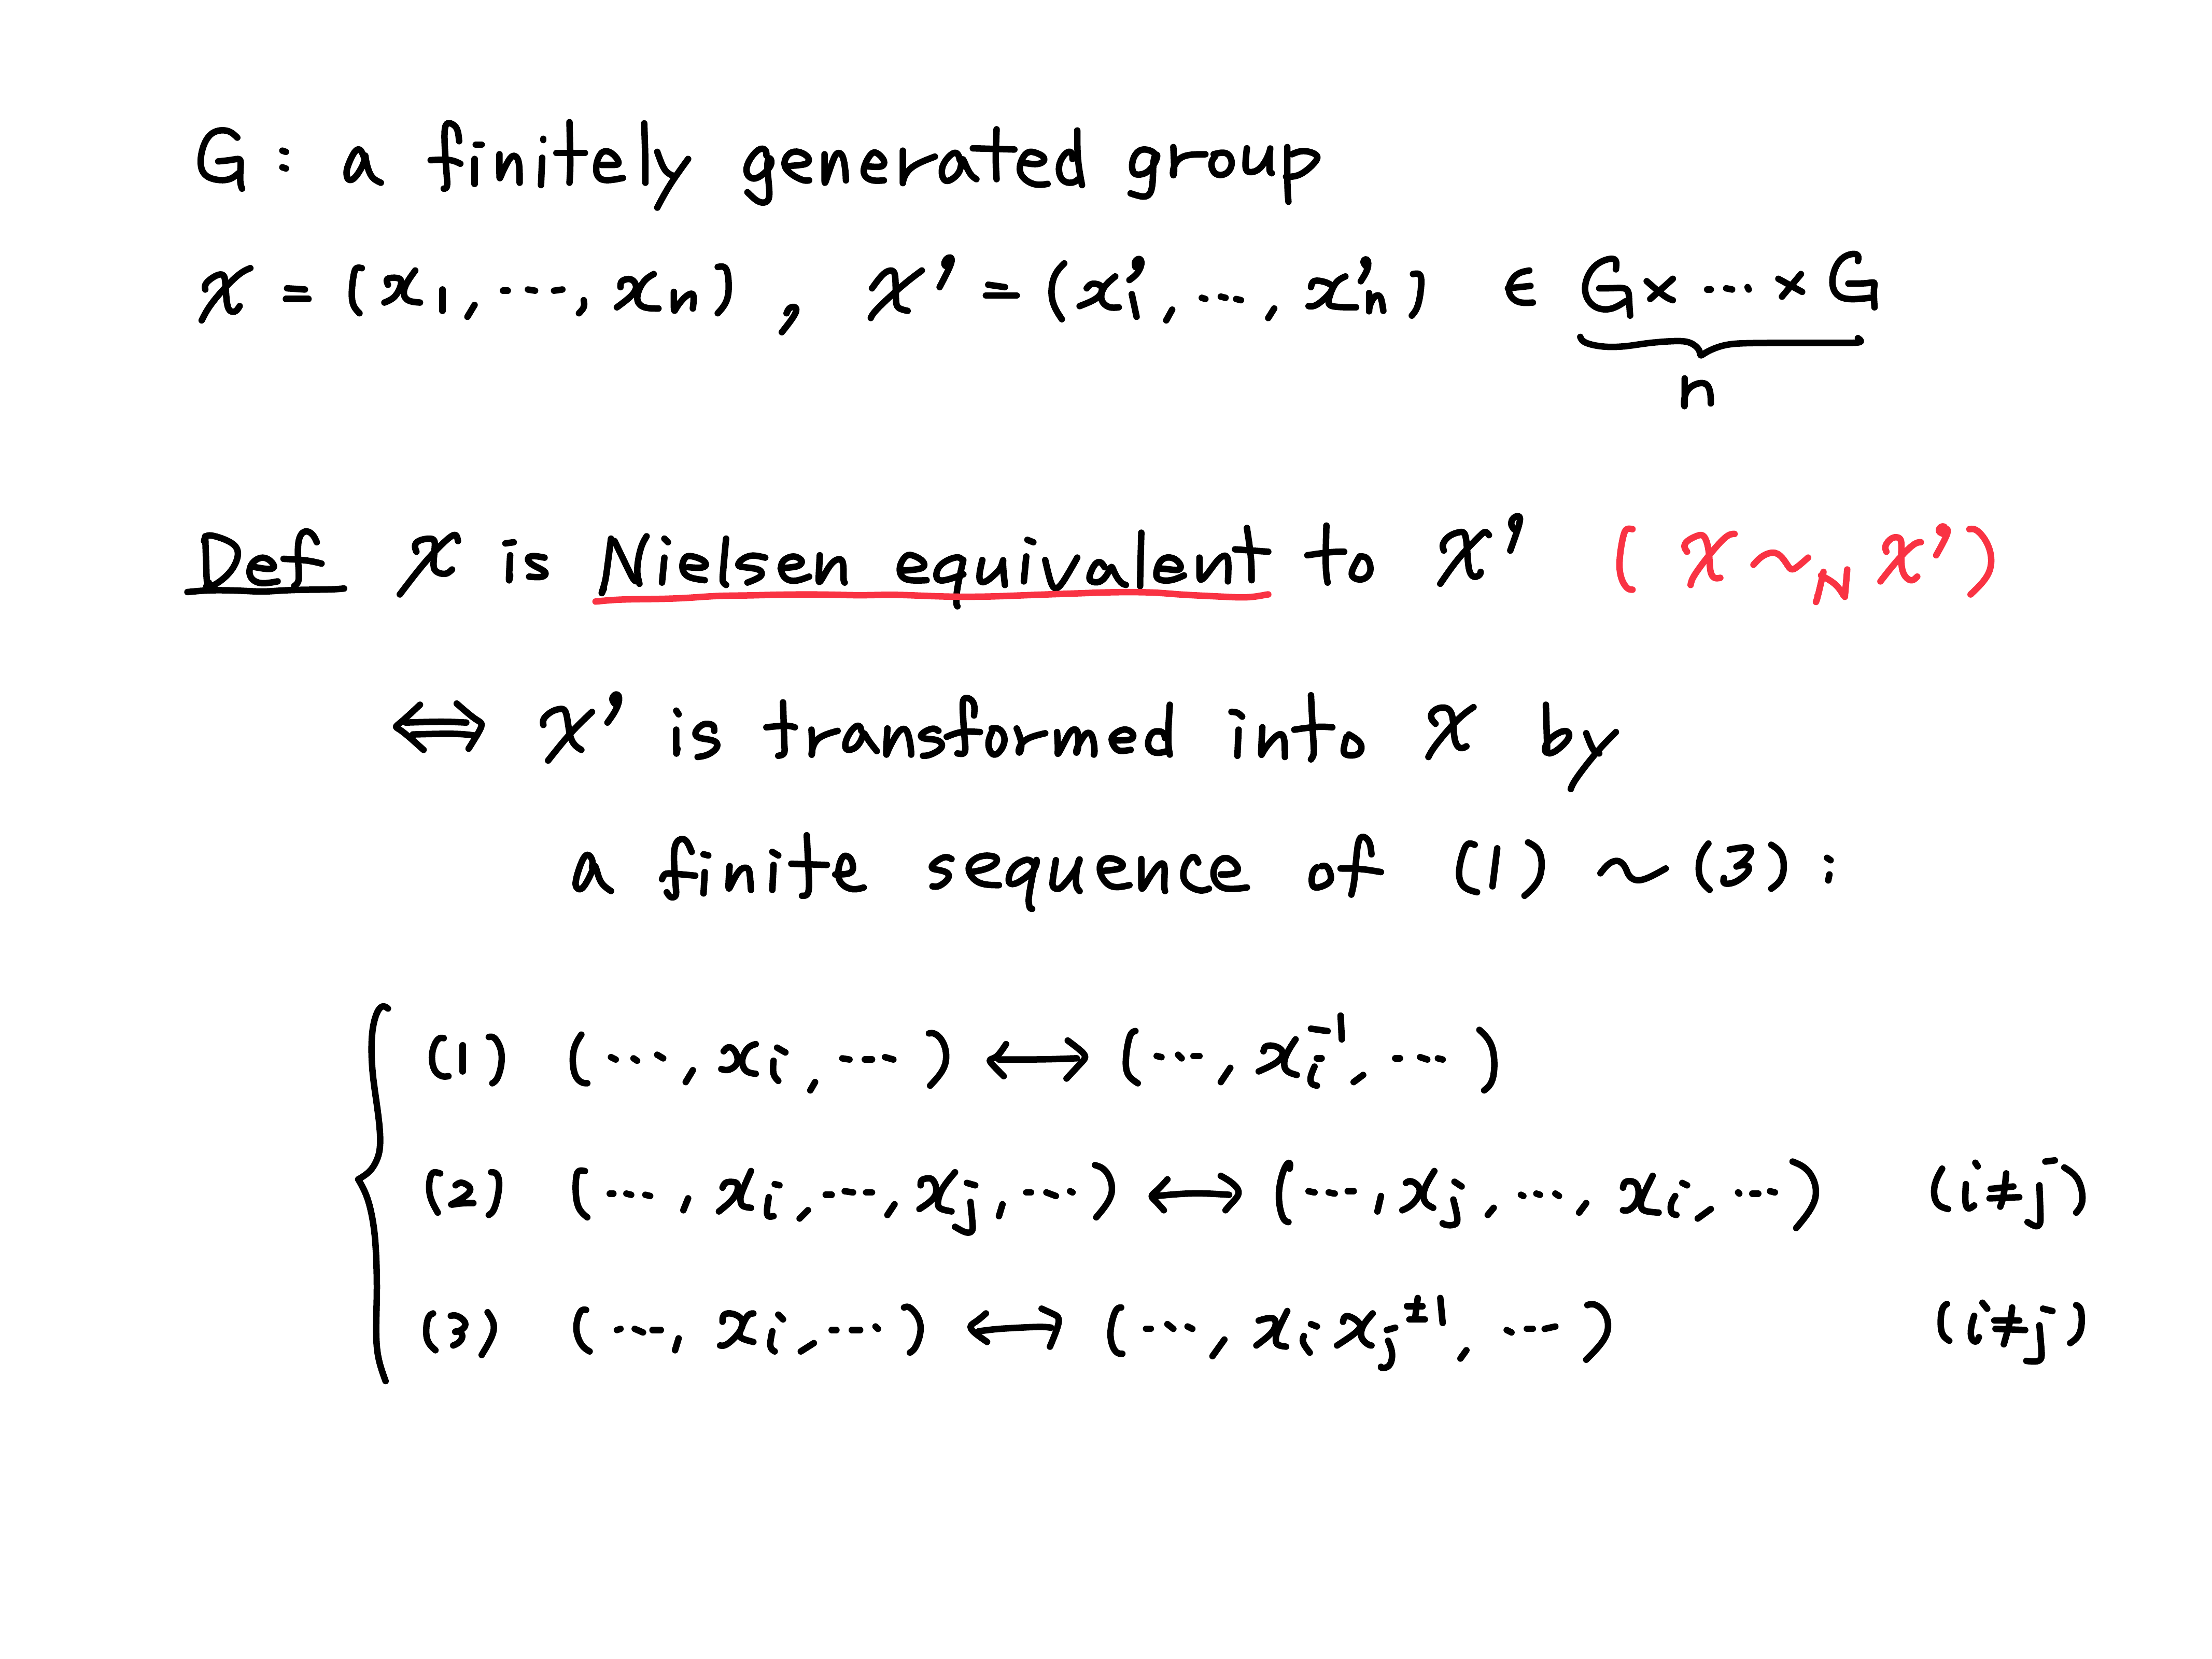 G : a finitely generated group
𝓍 = (x₁, ⋯, xₙ) , 𝓍' = (x'₁, ⋯, x'ₙ) ∈ G × ⋯ × G
n
Def 𝓍 is Nielsen equivalent to 𝓍' ( 𝓍 ~_N 𝓍' )
⟺ 𝓍' is transformed into 𝓍 by
a finite sequence of (1) ~ (3) :
(1) (⋯, xᵢ, ⋯) ⟷ (⋯, xᵢ⁻¹, ⋯)
(2) (⋯, xᵢ, ⋯, xⱼ, ⋯) ⟷ (⋯, xⱼ, ⋯, xᵢ, ⋯) (i ≠ j)
(3) (⋯, xᵢ, ⋯) ⟷ (⋯, xᵢxⱼ^±1, ⋯) (i ≠ j)